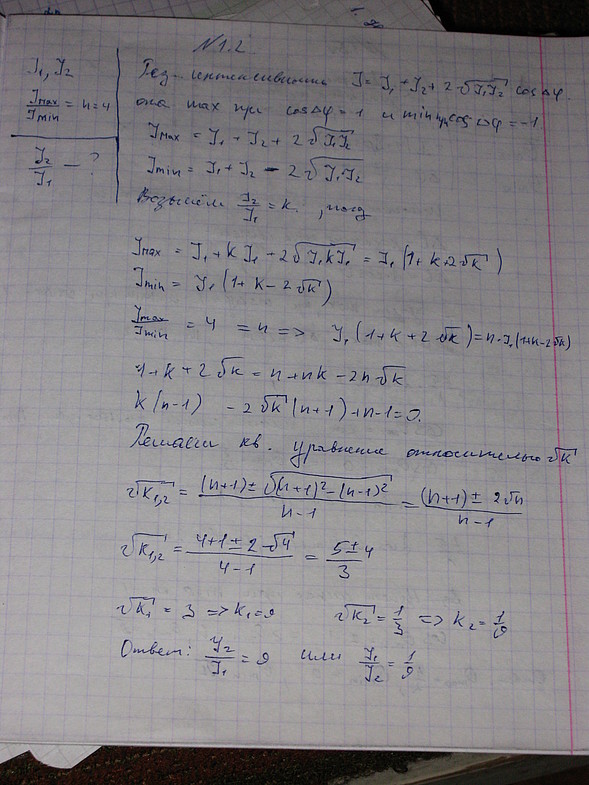 N 1.2
J₁, J₂
Jmax/Jmin = n = 4
J₂/J₁ — ?
Рез. интенсивность J = J₁ + J₂ + 2√(J₁J₂) cos Δφ.
она max при cos Δφ = 1 и min при cos Δφ = -1
Jmax = J₁ + J₂ + 2√(J₁J₂)
Jmin = J₁ + J₂ - 2√(J₁J₂)
Возьмём J₂/J₁ = k, тогда
Jmax = J₁ + kJ₁ + 2√(J₁kJ₁) = J₁(1+k+2√k)
Jmin = J₁(1+k-2√k)
Jmax/Jmin = 4 = n => J₁(1+k+2√k) = n·J₁(1+k-2√k)
1+k+2√k = n+nk-2n√k
k(n-1) - 2√k(n+1)+n-1=0.
Решаем кв. уравнение относительно √k
√k₁,₂ = ((n+1) ± √((n+1)²-(n-1)²))/(n-1) = ((n+1) ± 2√n)/(n-1)
√k₁,₂ = (4+1±2√4)/(4-1) = (5±4)/3
√k₁ = 3 => k₁=9 √k₂ = 1/3 => k₂ = 1/9
Ответ: J₂/J₁ = 9 или J₁/J₂ = 1/9